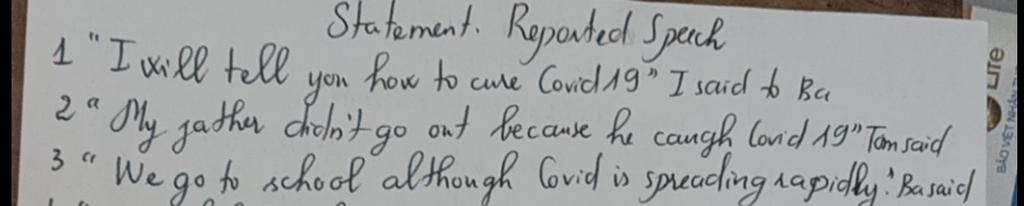 Statement. Reported Speech
1 "I will tell you how to cure Covid 19" I said to Ba
2 "My gather didn't go out because he caugh Covid 19" Tom said
3 "We go to school although Covid is spreading rapidly." Ba said
Life
BẢO VIỆT NHÂN